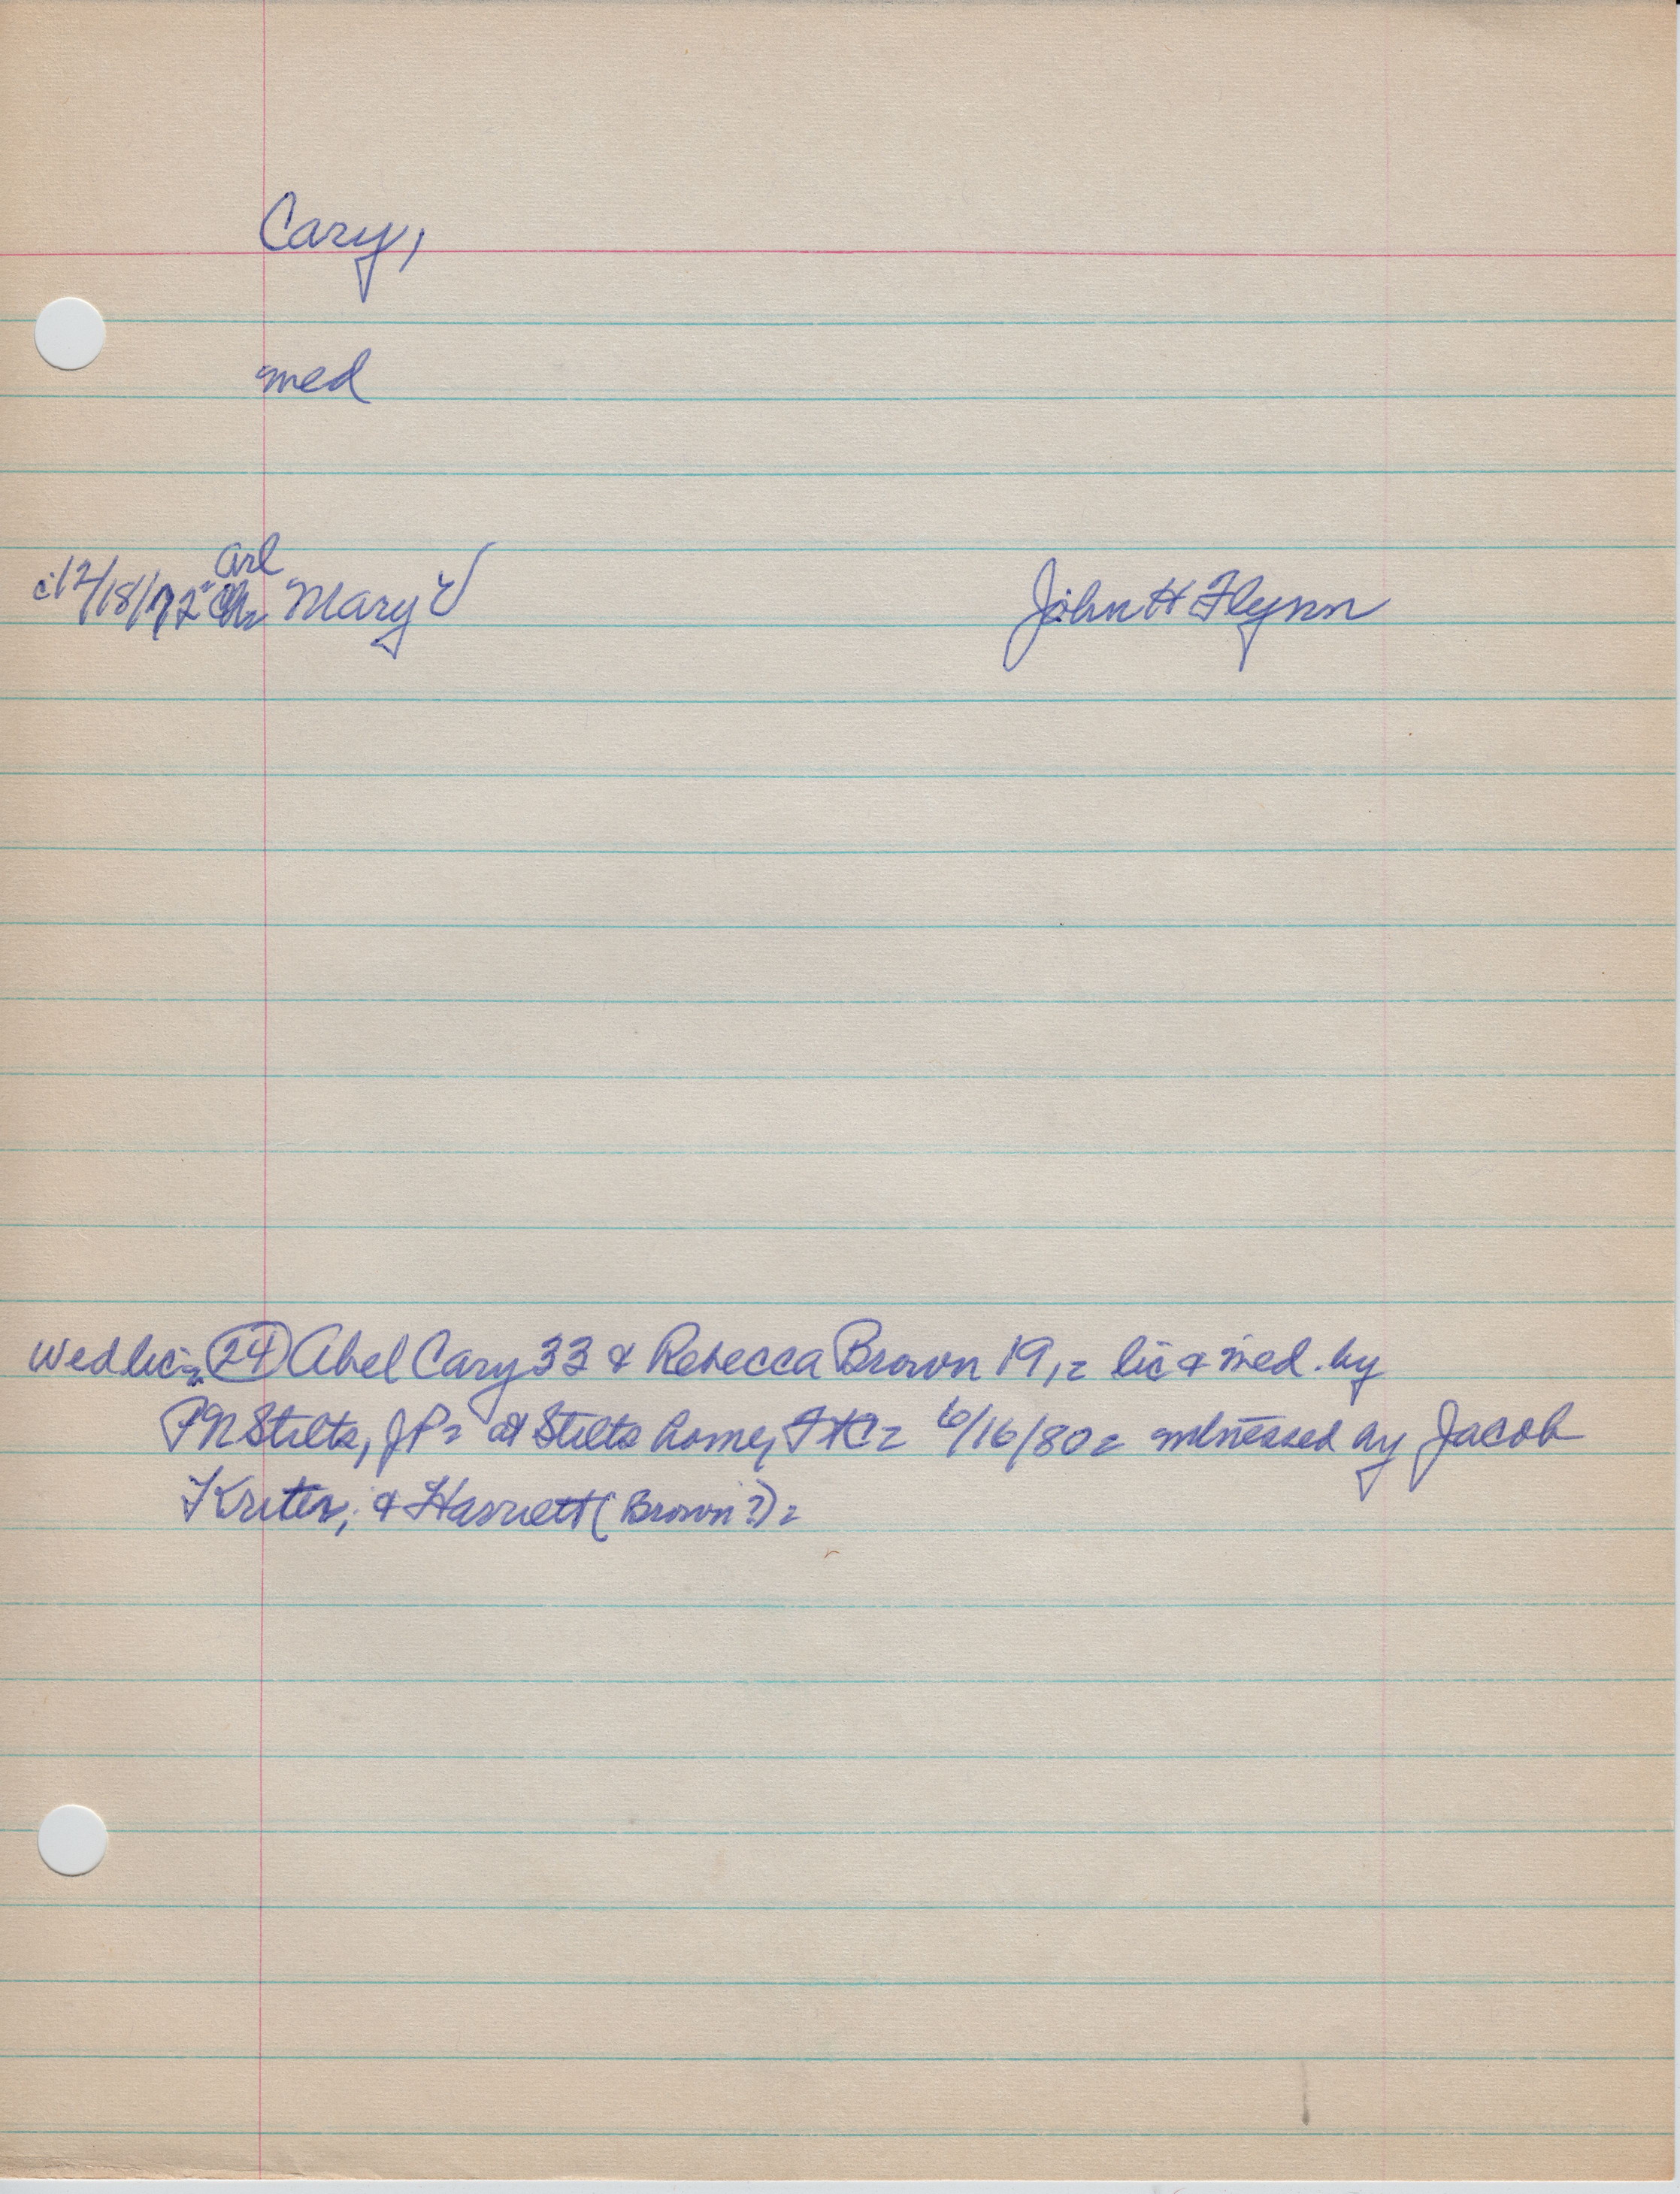 Cary,
med
Arl
c 12/18/72 Mary E John H Flynn
Wed lic (24) Abel Cary 33 & Rebecca Brown 19, lic & med. by
PN Stilts, JP at Stilts home, 6/16/80 witnessed by Jacob
Kriter, & Harriett (Brown?)